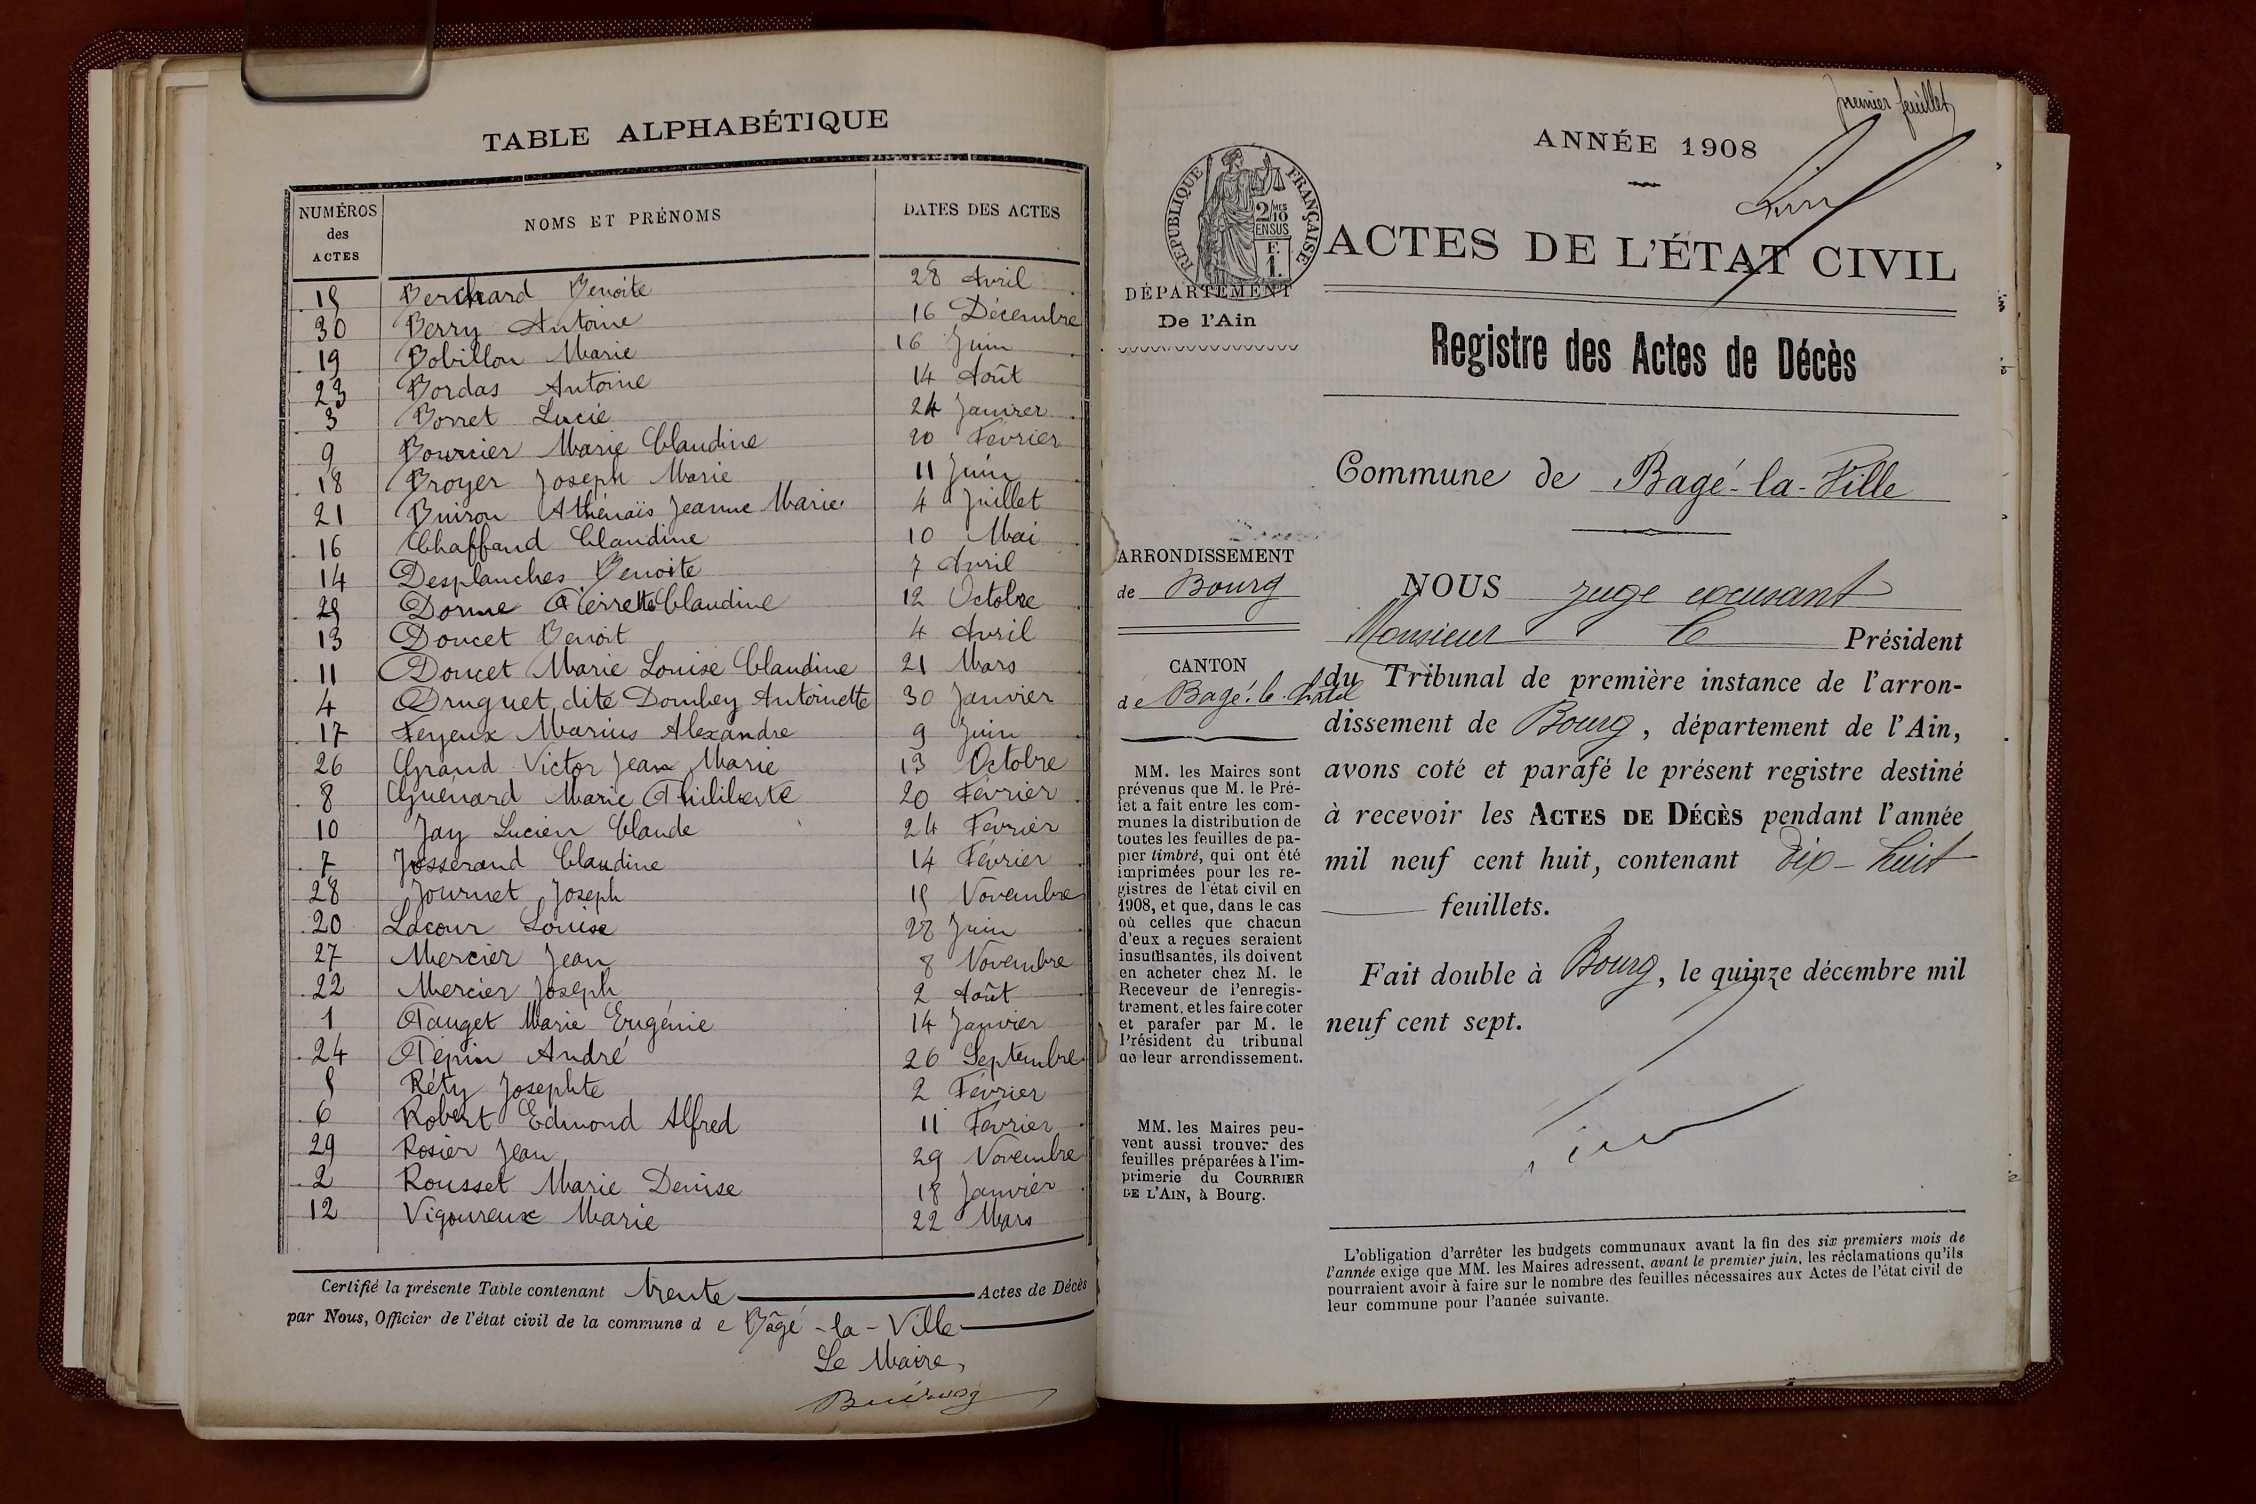 TABLE ALPHABÉTIQUE
NUMÉROS des ACTES NOMS ET PRÉNOMS DATES DES ACTES
15 Berchard Benoite 28 Avril
30 Berry Antoine 16 Décembre
19 Bobillon Marie 16 Juin
23 Bordas Antoine 14 Août
3 Borret Lucie 24 Janvier
9 Bourcier Marie Claudine 20 Février
18 Broyer Joseph Marie 11 Juin
21 Buiron Athénaïs Jeanne Marie 4 Juillet
16 Chaffaud Claudine 10 Mai
14 Desplanches Benoite 7 Avril
25 Dorme Pierrette Claudine 12 Octobre
13 Doucet Benoit 4 Avril
11 Doucet Marie Louise Claudine 21 Mars
4 Druguet dite Dombey Antoinette 30 Janvier
17 Feyeux Marius Alexandre 9 Juin
26 Grand Victor Jean Marie 13 Octobre
8 Guenard Marie Philiberte 20 Février
10 Jay Lucien Claude 24 Février
7 Josserand Claudine 14 Février
28 Journet Joseph 15 Novembre
20 Lacour Louise 28 Juin
27 Mercier Jean 8 Novembre
22 Mercier Joseph 2 Août
1 Pauget Marie Eugénie 14 Janvier
24 Pépin André 26 Septembre
5 Réty Josephte 2 Février
6 Robert Edmond Alfred 11 Février
29 Rosier Jean 29 Novembre
2 Rousset Marie Denise 18 Janvier
12 Vigoureux Marie 22 Mars
Certifié la présente Table contenant trente Actes de Décès
par Nous, Officier de l'état civil de la commune de Bâgé-la-Ville
Le Maire,
premier feuillet
ANNÉE 1908
RÉPUBLIQUE FRANÇAISE
2/10 MES
EN SUS
F.
1.
ACTES DE L'ÉTAT CIVIL
DÉPARTEMENT
De l'Ain
Registre des Actes de Décès
Commune de Bagé-la-Ville
ARRONDISSEMENT
de Bourg
CANTON
de Bagé-le-Châtel
MM. les Maires sont
prévenus que M. le Pré-
fet a fait entre les com-
munes la distribution de
toutes les feuilles de pa-
pier timbré, qui ont été
imprimées pour les re-
gistres de l'état civil en
1908, et que, dans le cas
où celles que chacun
d'eux a reçues seraient
insuffisantes, ils doivent
en acheter chez M. le
Receveur de l'enregis-
trement, et les faire coter
et parafer par M. le
Président du tribunal
de leur arrondissement.
MM. les Maires peu-
vent aussi trouver des
feuilles préparées à l'im-
primerie du COURRIER
DE L'AIN, à Bourg.
NOUS juge excusant
Monsieur le Président
du Tribunal de première instance de l'arron-
dissement de Bourg, département de l'Ain,
avons coté et parafé le présent registre destiné
à recevoir les ACTES DE DÉCÈS pendant l'année
mil neuf cent huit, contenant dix-huit
feuillets.
Fait double à Bourg, le quinze décembre mil
neuf cent sept.
L'obligation d'arrêter les budgets communaux avant la fin des six premiers mois de
l'année exige que MM. les Maires adressent, avant le premier juin, les réclamations qu'ils
pourraient avoir à faire sur le nombre des feuilles nécessaires aux Actes de l'état civil de
leur commune pour l'année suivante.